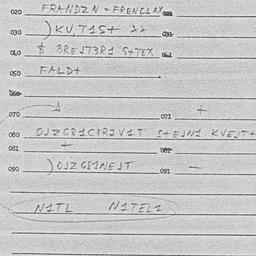 020 FRANDZN - FRENCLAX 021
030 )KV,T1S+ 031
040 $ BREJT3R1 S+TEX 041
050 FALD+
060
070 071 +
080 OJZG81C1RJV1T S+EJN1 KVEJT+
081 + 082
090 )OJZG81NEJT 091 -
N1TL N1TEL1